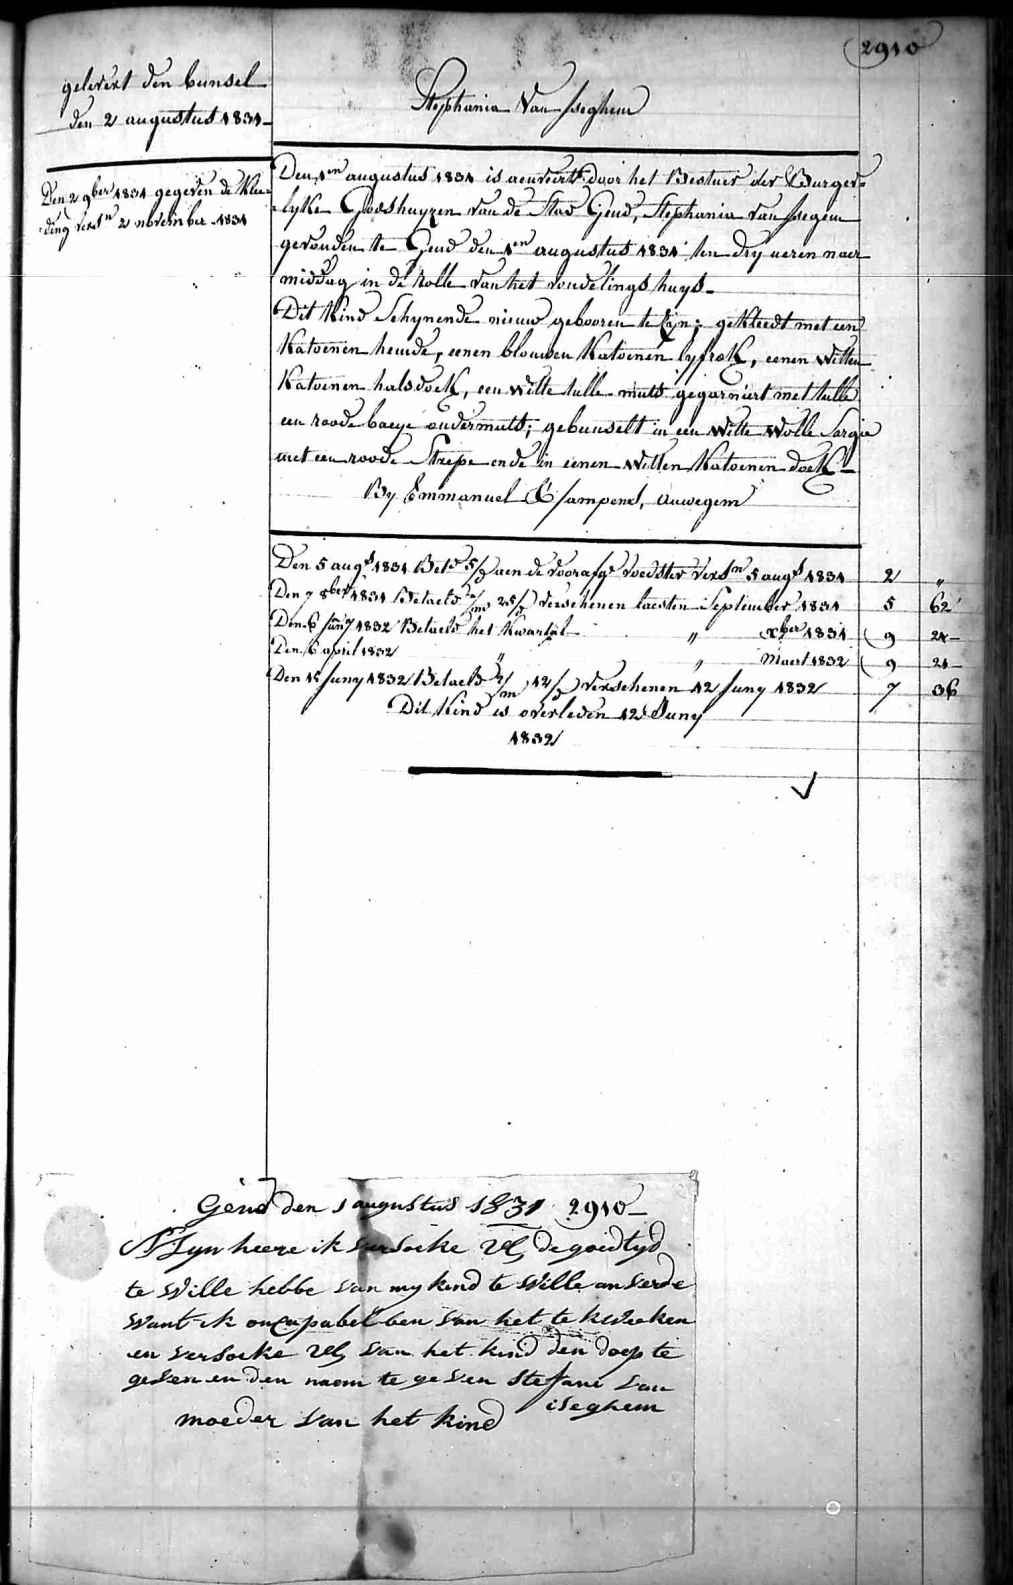 2910
gelevert den bunsel
den 2 augustus 1831
Stephania Van Iseghem
Den 2 9ber 1831 gegeven de Klee-
ding versn 2 november 1831
Den 1en augustus 1831 is aenveirdt door het Bestuer der Burger-
lyke Godshuyzen van de Stad Gend, Stephania van Isegem
gevonden te Gend den 1en augustus 1831 ten dry ueren naer
middag in de Rolle van het vondelings huys
Dit Kind Schynende nieuw gebooren te Zyn; gekleedt met een
Katoenen hemde, eenen blouwen Katoenen lyfrok, eenen Witten
Katoenen halsdoek, een Witte tulle muts gegarniert met tulle
een roode baeye ondermuts; gebunselt in een Witte Wolle Sargie
met een roode Streepe ende in eenen Witten Katoenen doek
By Emmanuel auwegem
Den 5 augs 1831 Betd 5/ aen de voorafge voedster versn 5 augs 1831 2 "
Den 7 8ber 1831 Betaelt 2/m 25/ verschenen laesten September 1831 5 62
Den 6 January 1832 Betaelt het Kwartal " Xber 1831 9 24
Den 6 april 1832 " " Maert 1832 9 24
Den 15 Juny 1832 Betaelt 2/m 12/ verschenen 12 Juny 1832 7 36
Dit Kind is overleden 12 Juny
1832
Gend den 1 augustus 1831 2910
Mynheere ik versoeke UE de goedtyd
te wille hebbe van my kend te wille anverde
want ik oncapabel ben van het te kweeken
en versoeke UE van het kind den doop te
geven en den naem te geven Stefani van
iseghem
moeder van het kind